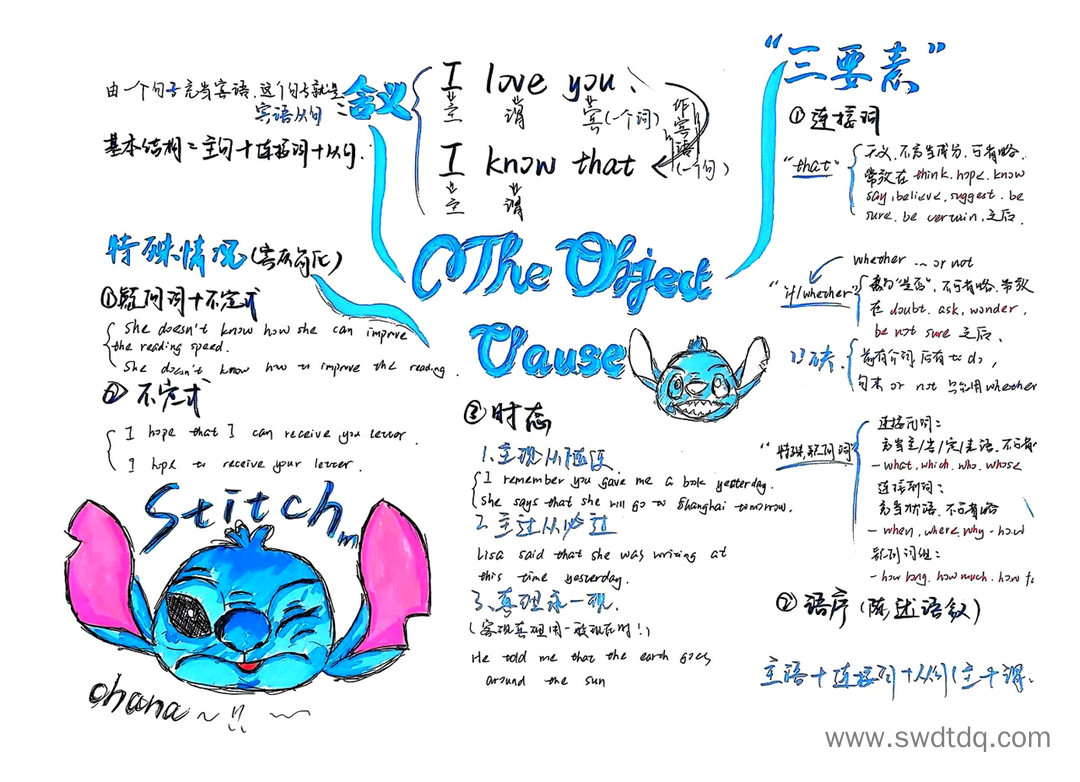 由一个句子充当宾语,这个句子就是
宾语从句
基本结构=主句+连接词+从句.
含义
I love you、
主 谓 宾(一个词)
作宾语
I know that
(一个句)
主 谓
The Object
Clause
“三要素”
①连接词
"that"
无义,不充当成分,可省略
常放在 think, hope, know
say, believe, suggest, be
sure, be certain, 之后.
whether … or not
"if/whether"
意为"是否",不可省略,常放
在 doubt, ask, wonder,
be not sure 之后、
前有介词 后有 to do,
句末 or not 只用whether
"特殊疑问词"
连接代词:
充当主/宾/定/表语,不可省
- what, which, who, whose
连接副词:
充当状语,不可省略
- when, where, why, how
疑问词组:
- how long, how much, how f
②语序(陈述语叙)
主语+连接词+从句(主+谓.
③时态
1.主现从随便
I remember you gave me a book yesterday.
She says that she will go to Shanghai tomorrow.
2.主过从必过
Lisa said that she was writing at
this time yesterday.
3、真理永一现.
(客观真理用一般现在时!)
He told me that the earth goes
around the sun
特殊情况(宾从简化)
①疑问词+不定式
She doesn't know how she can improve
the reading speed.
She doesn't know how to improve the reading.
②不定式
I hope that I can receive you letter.
I hope to receive your letter.
Stitch
ohana~!!
www.swdtdq.com